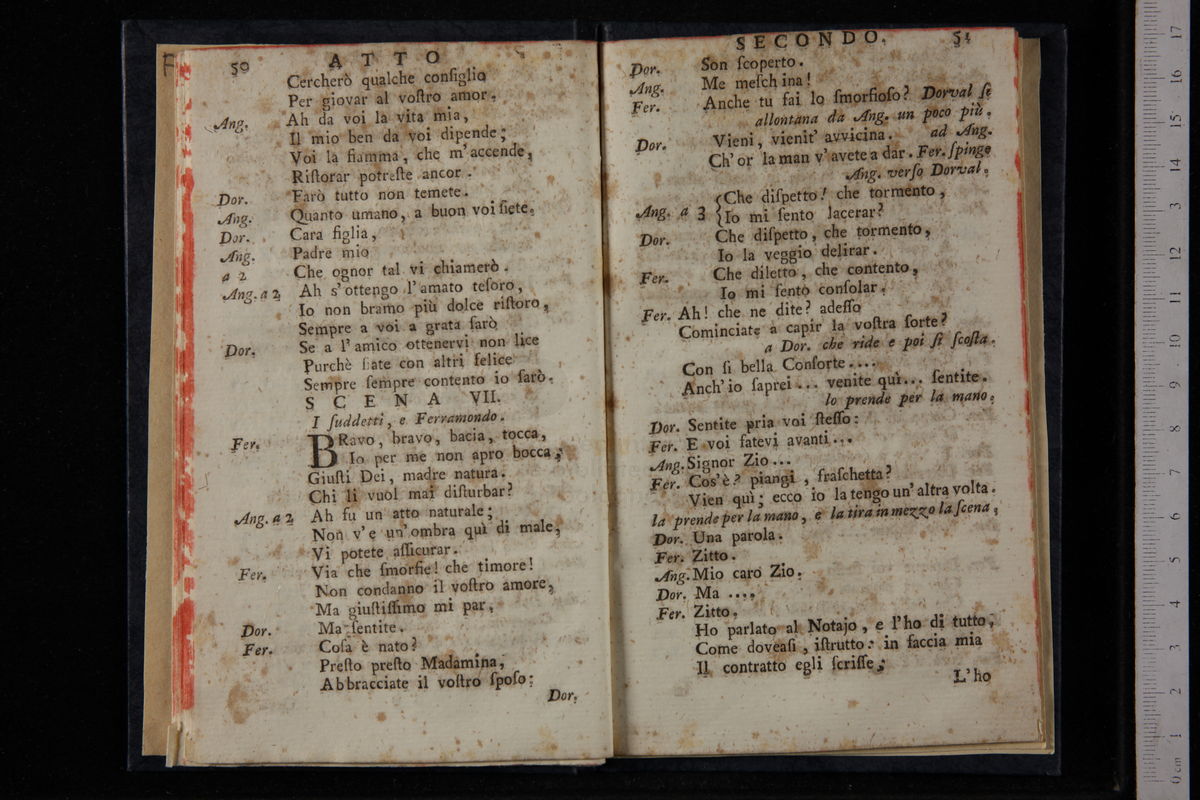 50 ATTO
Cercherò qualche conſiglio
Per giovar al voſtro amor.
Ang. Ah da voi la vita mia,
Il mio ben da voi dipende;
Voi la fiamma, che m'accende,
Riſtorar potreſte ancor.
Dor. Farò tutto non temete.
Ang. Quanto umano, a buon voi ſiete.
Dor. Cara figlia,
Ang. Padre mio
a 2 Che ognor tal vi chiamerò.
Ang. a 2 Ah s'ottengo l'amato teſoro,
Io non bramo più dolce riſtoro,
Sempre a voi a grata farò
Dor. Se a l'amico ottenervi non lice
Purchè ſiate con altri felice
Sempre ſempre contento io farò.
SCENA VII.
I ſuddetti, e Ferramondo.
Fer. BRavo, bravo, bacia, tocca,
Io per me non apro bocca;
Giuſti Dei, madre natura.
Chi li vuol mai diſturbar?
Ang. a 2 Ah fu un atto naturale;
Non v'e un'ombra quì di male,
Vi potete aſſicurar.
Fer. Via che ſmorfie! che timore!
Non condanno il voſtro amore,
Ma giuſtiſſimo mi par,
Dor. Ma ſentite.
Fer. Coſa è nato?
Preſto preſto Madamina,
Abbracciate il voſtro ſpoſo:
Dor.
SECONDO. 51
Dor. Son ſcoperto.
Ang. Me meſch ina!
Fer. Anche tu fai lo ſmorfioſo? Dorval ſe
allontana da Ang. un poco più.
Dor. Vieni, vienit' avvicina. ad Ang.
Ch'or la man v'avete a dar. Fer. ſpinge
Ang. verſo Dorval.
Ang. a 3 {Che diſpetto! che tormento,
Io mi ſento lacerar?
Dor. Che diſpetto, che tormento,
Io la veggio delirar.
Fer. Che diletto, che contento,
Io mi ſento conſolar.
Fer. Ah! che ne dite? adeſſo
Cominciate a capir la voſtra ſorte?
a Dor. che ride e poi ſi ſcoſta.
Con ſi bella Conſorte....
Anch'io ſaprei... venite quì... ſentite.
lo prende per la mano.
Dor. Sentite pria voi ſteſſo:
Fer. E voi fatevi avanti...
Ang. Signor Zio...
Fer. Cos'è? piangi, fraſchetta?
Vien quì; ecco io la tengo un'altra volta.
la prende per la mano, e la tira in mezzo la ſcena,
Dor. Una parola.
Fer. Zitto.
Ang. Mio caro Zio.
Dor. Ma ....
Fer. Zitto.
Ho parlato al Notajo, e l'ho di tutto,
Come doveaſi, iſtrutto: in faccia mia
Il contratto egli ſcriſſe;
L'ho